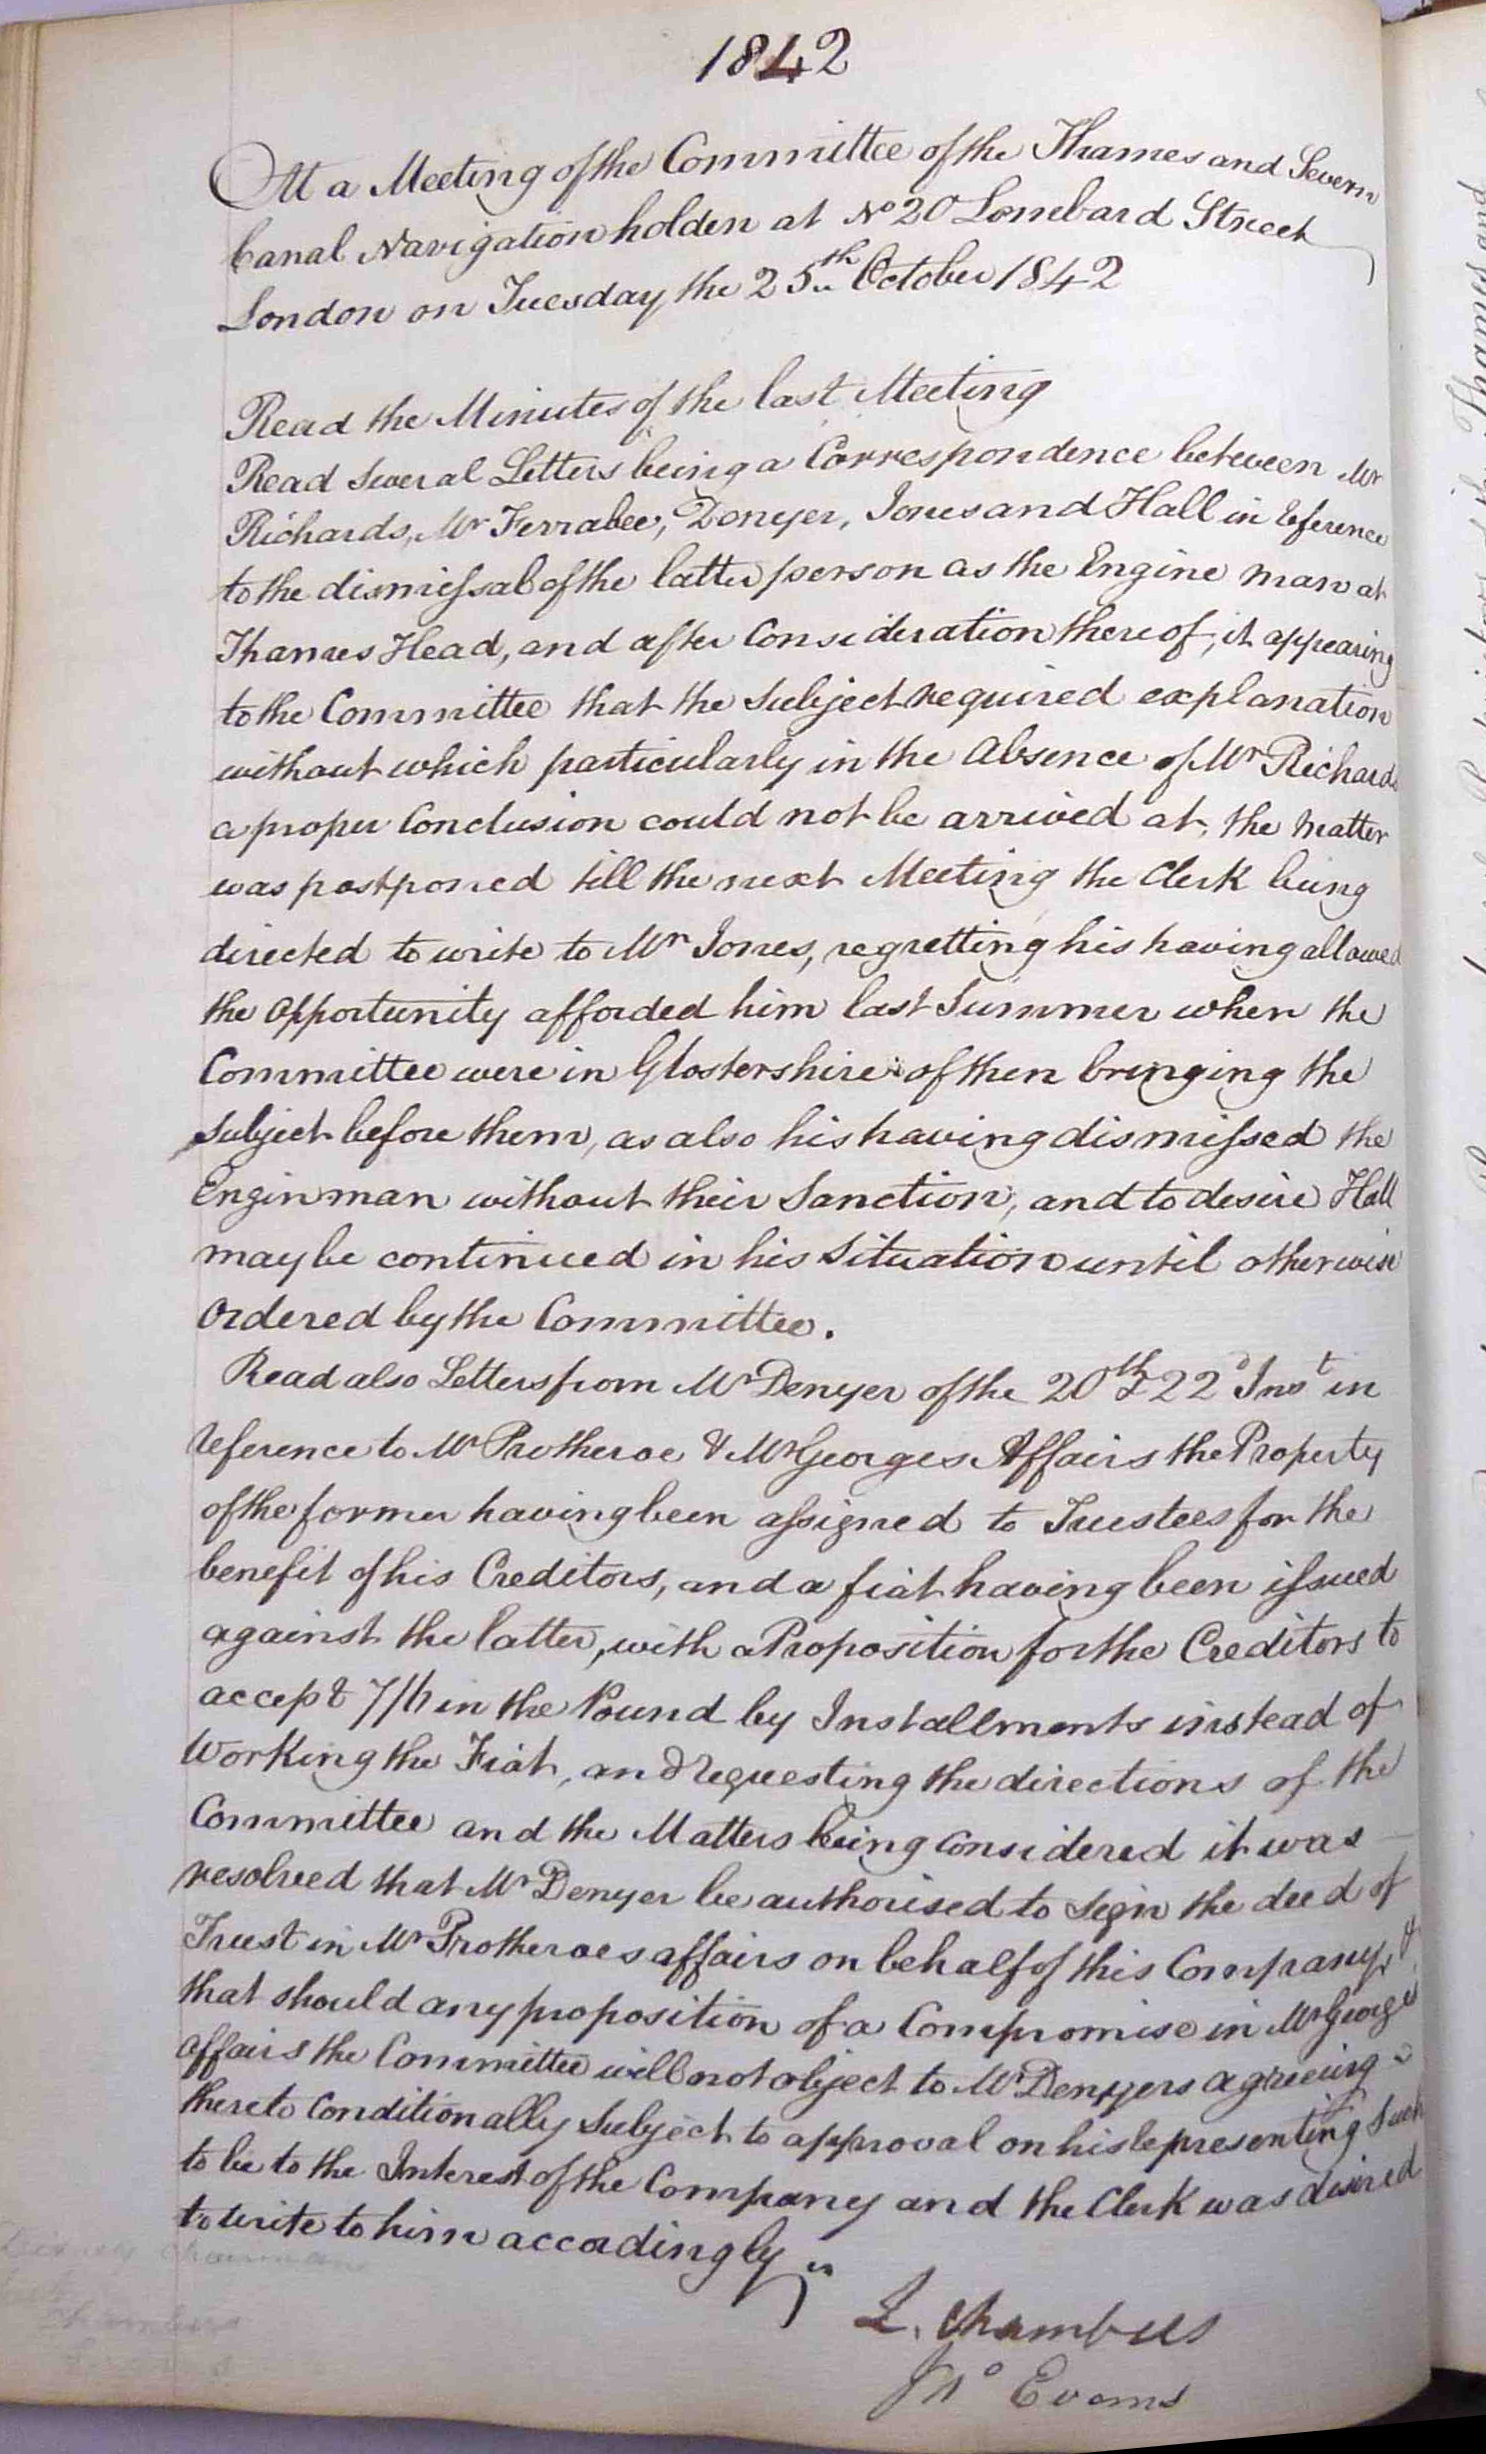 1842
At a Meeting of the Committee of the Thames and Severn
Canal Navigation holden at No 20 Lombard Street
London on Tuesday the 25th October 1842
Read the Minutes of the last Meeting
Read several Letters being a Correspondence between Mr
Richards, Mr Ferrabee, Denyer, Jones and Hall in reference
to the dismissal of the latter person as the Engine man at
Thames Head, and after Consideration thereof, it appearing
to the Committee that the Subject required explanation
without which particularly in the absence of Mr Richards
a proper Conclusion could not be arrived at, the matter
was postponed till the next Meeting the Clerk being
directed to write to Mr Jones, regretting his having allowed
the opportunity afforded him last Summer when the
Committee were in Glostershire of then bringing the
Subject before them, as also his having dismissed the
Enginman without their Sanction, and to desire Hall
may be continued in his Situation until otherwise
ordered by the Committee.
Read also Letters from Mr Denyer of the 20th & 22d Inst in
reference to Mr Protheroe & Mr Georges Affairs the Property
of the former having been assigned to Trustees for the
benefit of his Creditors, and a fiat having been issued
against the latter, with a Proposition for the Creditors to
accept 7/6 in the Pound by Installments instead of
Working the Fiat, and requesting the directions of the
Committee and the Matters being considered it was
resolved that Mr Denyer be authorised to sign the deed of
Trust in Mr Protheroes affairs on behalf of this Company &
that should any proposition of a Compromise in Mr Georges
affairs the Committee will not object to Mr Denyers agreeing
thereto Conditionally Subject to approval on his representing such
to be to the Interest of the Company and the Clerk was desired
to write to him accordingly
L. Chambers
Jno Evans